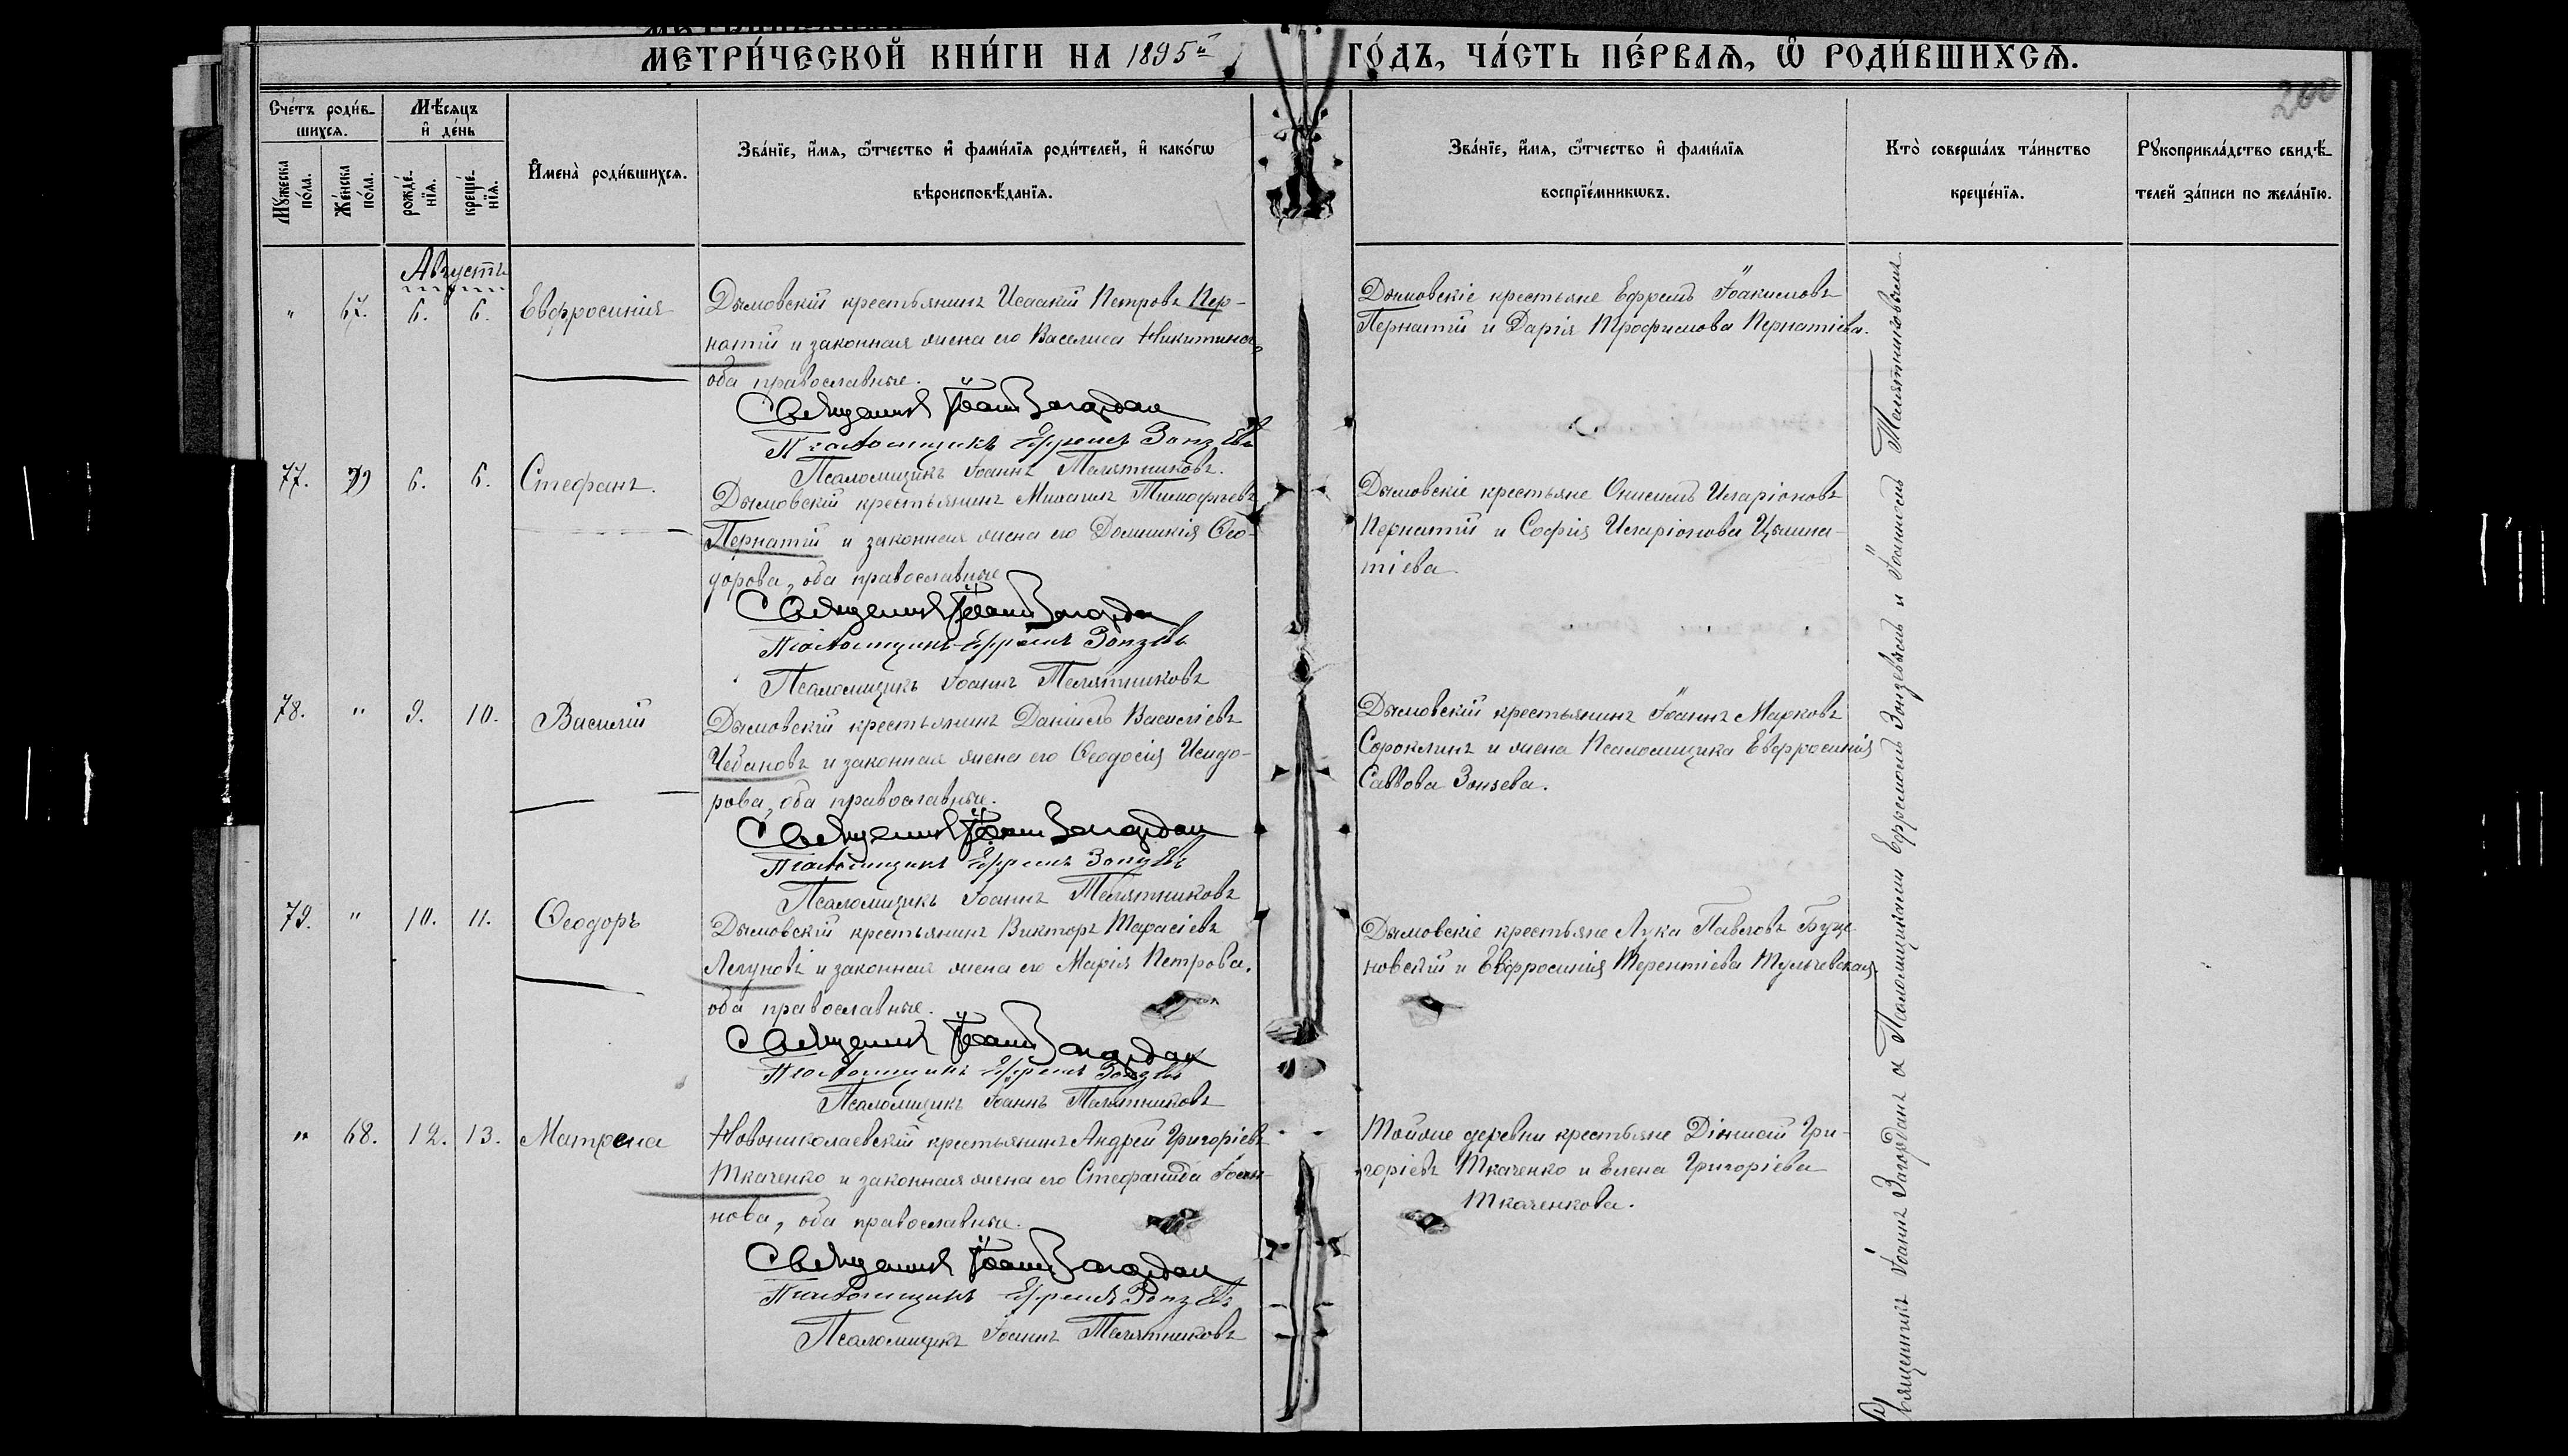 МЕТРИ́ЧЕСКОЙ КНИ́ГИ НА 1895й ГО́ДЪ, ЧА́СТЬ ПЕ́РВАѦ, Ѡ РОДИ́ВШИХСѦ.
200
Сче́тъ роди́в-
шихсѧ.
Мѣ́сяцъ
и҆ де́нь
Мꙋ́жеска
по́ла.
Же́нска
по́ла.
рожде́-
нїѧ.
креще́-
нїѧ.
И҆мена̀ роди́вшихсѧ.
Зва́нїе, и҆́мѧ, ѻ҆́тчество и҆ фами́лїѧ роди́телей, и҆ како́гѡ
вѣроисповѣ́данїѧ.
Зва́нїе, и҆́мѧ, ѻ҆́тчество и҆ фами́лїѧ
воспрїе́мникѡвъ.
Кто̀ соверша́лъ та́инство
креще́нїѧ.
Рꙋкоприкла́дство свидѣ́-
телей за́писи по жела́нїю.
Августъ
" 67. 6. 6. Евфросинія
Дымовскій крестьянинъ Исаакій Петровъ Пер-
натій и законная жена его Василиса Никитина,
оба православные.
Священникъ Іоаннъ Загордан
Псаломщикъ Ефремъ Зонзевъ
Псаломщикъ Іоаннъ Телятниковъ.
Дымовскіе крестьяне Ефремъ Іоакимовъ
Пернатій и Дарія Трофимова Пернатіева.
77. 6. 6. Стефанъ.
Дымовскій крестьянинъ Михаилъ Тимофеевъ
Пернатій и законная жена его Домникія Ѳео-
дорова, оба православные
Священникъ Іоаннъ Загордан
Псаломщикъ Ефремъ Зонзевъ
Псаломщикъ Іоаннъ Телятниковъ
Дымовскіе крестьяне Онисимъ Иларіоновъ
Пернатій и Софія Иларіонова
тіева
78. " 9. 10. Василій
Дымовскій крестьянинъ Даніилъ Василіевъ
Чебановъ и законная жена его Ѳеодосія Исидо-
рова, оба православные.
Священникъ Іоаннъ Загордан
Псаломщикъ Ефремъ Зонзевъ
Псаломщикъ Іоаннъ Телятниковъ
Дымовскій крестьянинъ Іоаннъ Марковъ
и жена Псаломщика Евфросинія
Саввова Зонзева.
79. " 10. 11. Ѳеодоръ
Дымовскій крестьянинъ Викторъ Тарасіевъ
Легуновъ и законная жена его Марія Петрова,
оба православные.
Священникъ Іоаннъ Загордан
Псаломщикъ Ефремъ Зонзевъ
Псаломщикъ Іоаннъ Телятниковъ
Дымовскіе крестьяне Лука Павловъ Буце-
новскій и Евфросинія Терентіева Тульчевская.
" 68. 12. 13. Матрена
Новониколаевскій крестьянинъ Андрей Григоріевъ
Ткаченко и законная жена его Стефанида Іоан-
нова, оба православные.
Священникъ Іоаннъ Загордан
Псаломщикъ Ефремъ Зонзевъ
Псаломщикъ Іоаннъ Телятниковъ
Тойже деревни крестьяне Діонисій Гри-
горіевъ Ткаченко и Елена Григоріева
Ткаченкова.
Священникъ Іоаннъ Загорданъ съ Псаломщиками Ефремомъ Зонзевымъ и Іоанномъ Телятниковымъ.